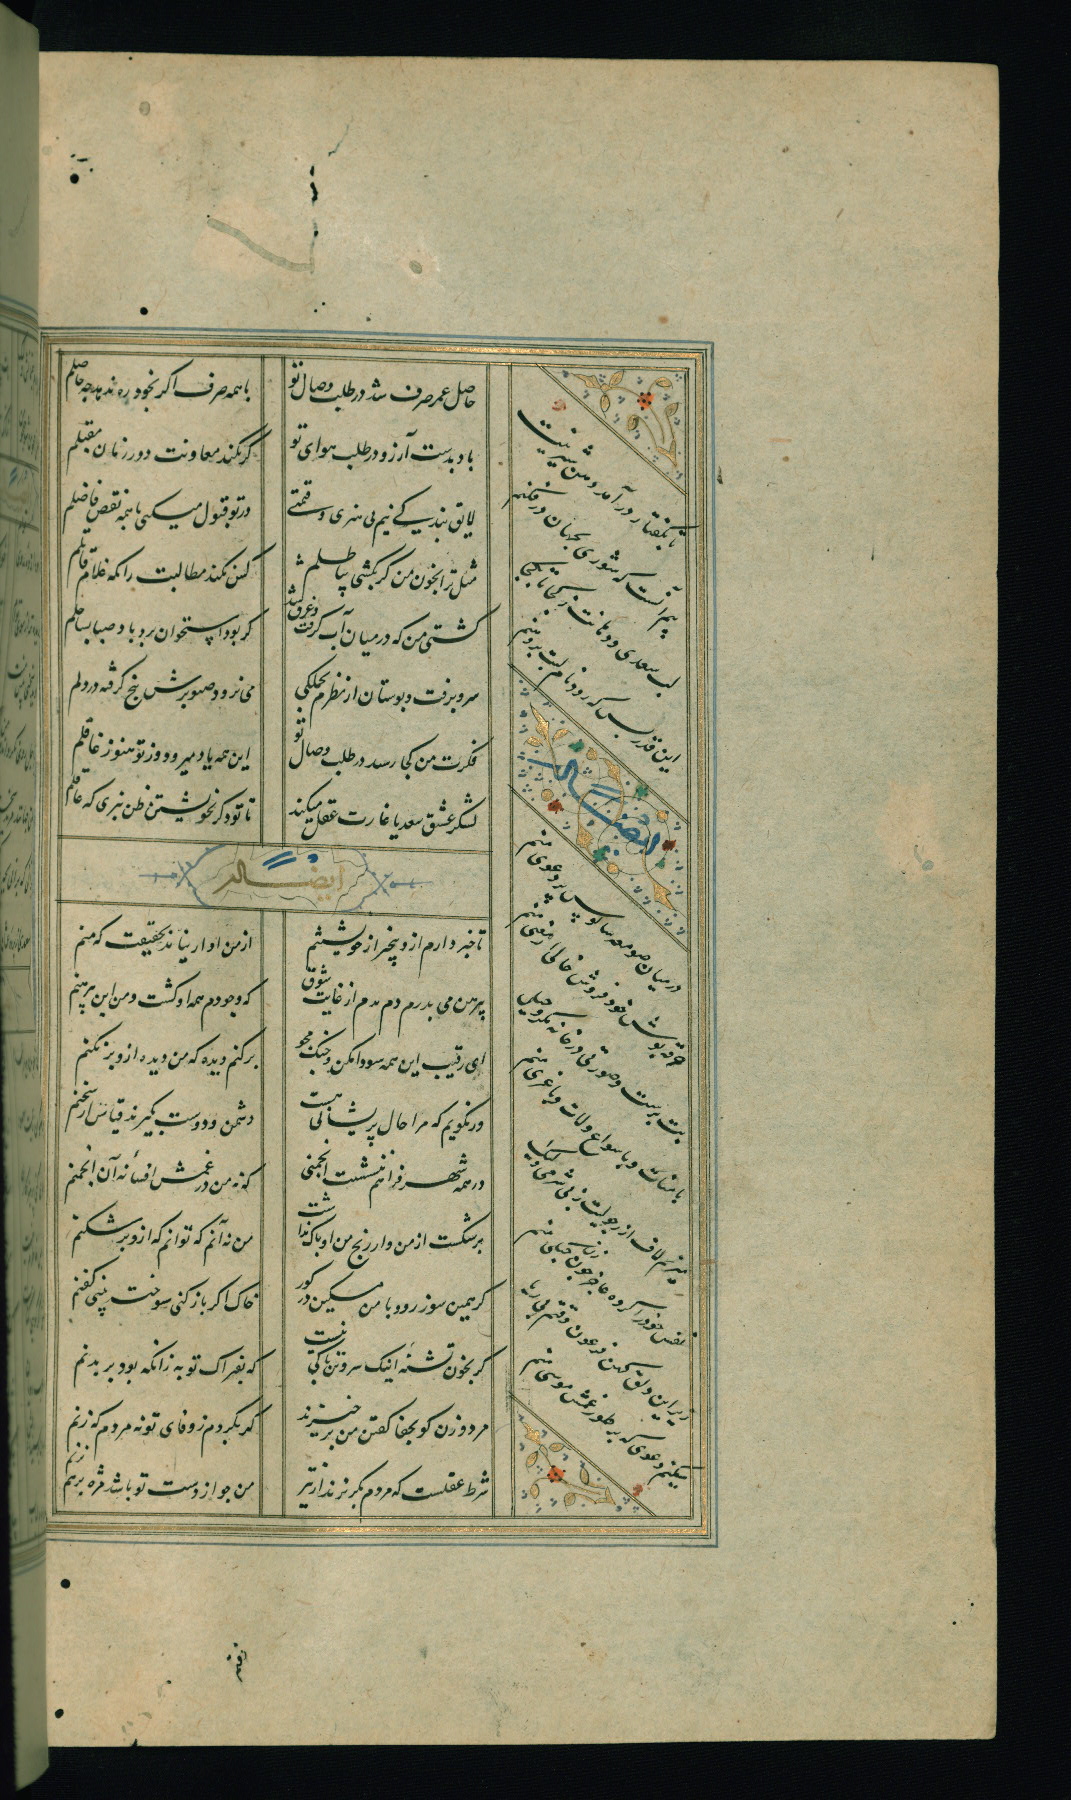 حاصل عمر صرف شد در طلب وصال تو
با همه صرف اگر بخود ره ندهد چه حاصلم
باد بدست آرزو در طلب هوای تو
گر نکند معاونت دور زمان مقبلم
لایق بندگی نیم بی هنری و قیمتی
ور تو قبول میکنی با همه نقص فاضلم
مثل ترا بخون من گر بکشی بباطلم
کس نکند مطالبت زانکه غلام قاتلم
کشتی من که در میان آب گرفت و غرق شد
گر بود استخوان برد باد صبا بساحلم
سرو برفت و بوستان از نظرم بجملگی
می نرود صنوبرش بیخ گرفته در دلم
فکرت من کجا رسد در طلب وصال تو
این همه یاد میرود وز تو هنوز غافلم
لشکر عشق سعدیا غارت عقل میکند
تا تو دگر بخویشتن ظن نبری که عاقلم
ایضاً له
تا خبر دارم از و بیخبر از خویشتنم
از من او ار نیاید بحقیقت که منم
پیرهن می بدرم دم بدم از غایت شوق
که وجودم همه او گشت و من این پیرهنم
ای رقیب این همه سودا مکن و جنک مجو
برکنم دیده که من دیده ازو بر نکنم
ور نگویم که مرا حال پریشانی هست
دشمن و دوست بگیرند قیاس از سخنم
در همه شهر فراهم ننشست انجمنی
که نه من در غمش افسانه آن انجمنم
برشکست از من و از رنج من او باک نداشت
من نه آنم که توانم که ازو برشکنم
گر همین سوز رود با من مسکین در گور
خاک اگر باز کنی سوخته بینی کفنم
گر بخون تشنه اینک سر و تن باکی نیست
که بفتراک تو به زانکه بود بر بدنم
مرد و زن گو بجفا گفتن من برخیزند
گر بگردم ز وفای تو نه مردم که زنم
شرط عقلست که مردم بگریزند از تیر
من جو از دست تو باشد مژه برهم نزنم
تا بگفتار درآمد دهن شیرینت
بیم آنست که شوری بجهان در فکنم
لب سعدی و دهانت ز کجا تا بکجا
این قدر بس که رود نام لبت بر دهنم
ایضاً له
در میان صومعه سالوس پر دعوی منم
خرقه پوش خود فروش خالی از معنی منم
بت پرست صورتی در خانه مکر و حیل
با منات و با سواع و لات و با عزی منم
میزنم لاف از رجولیت ز بی شرمی ولیک
نفس خود را کرده فاجر چون زن چنکی منم
زیر این دلق کهن فرعون وقتم بی ریا
میکنم دعوی که بر طور غمش موسی منم
رفته